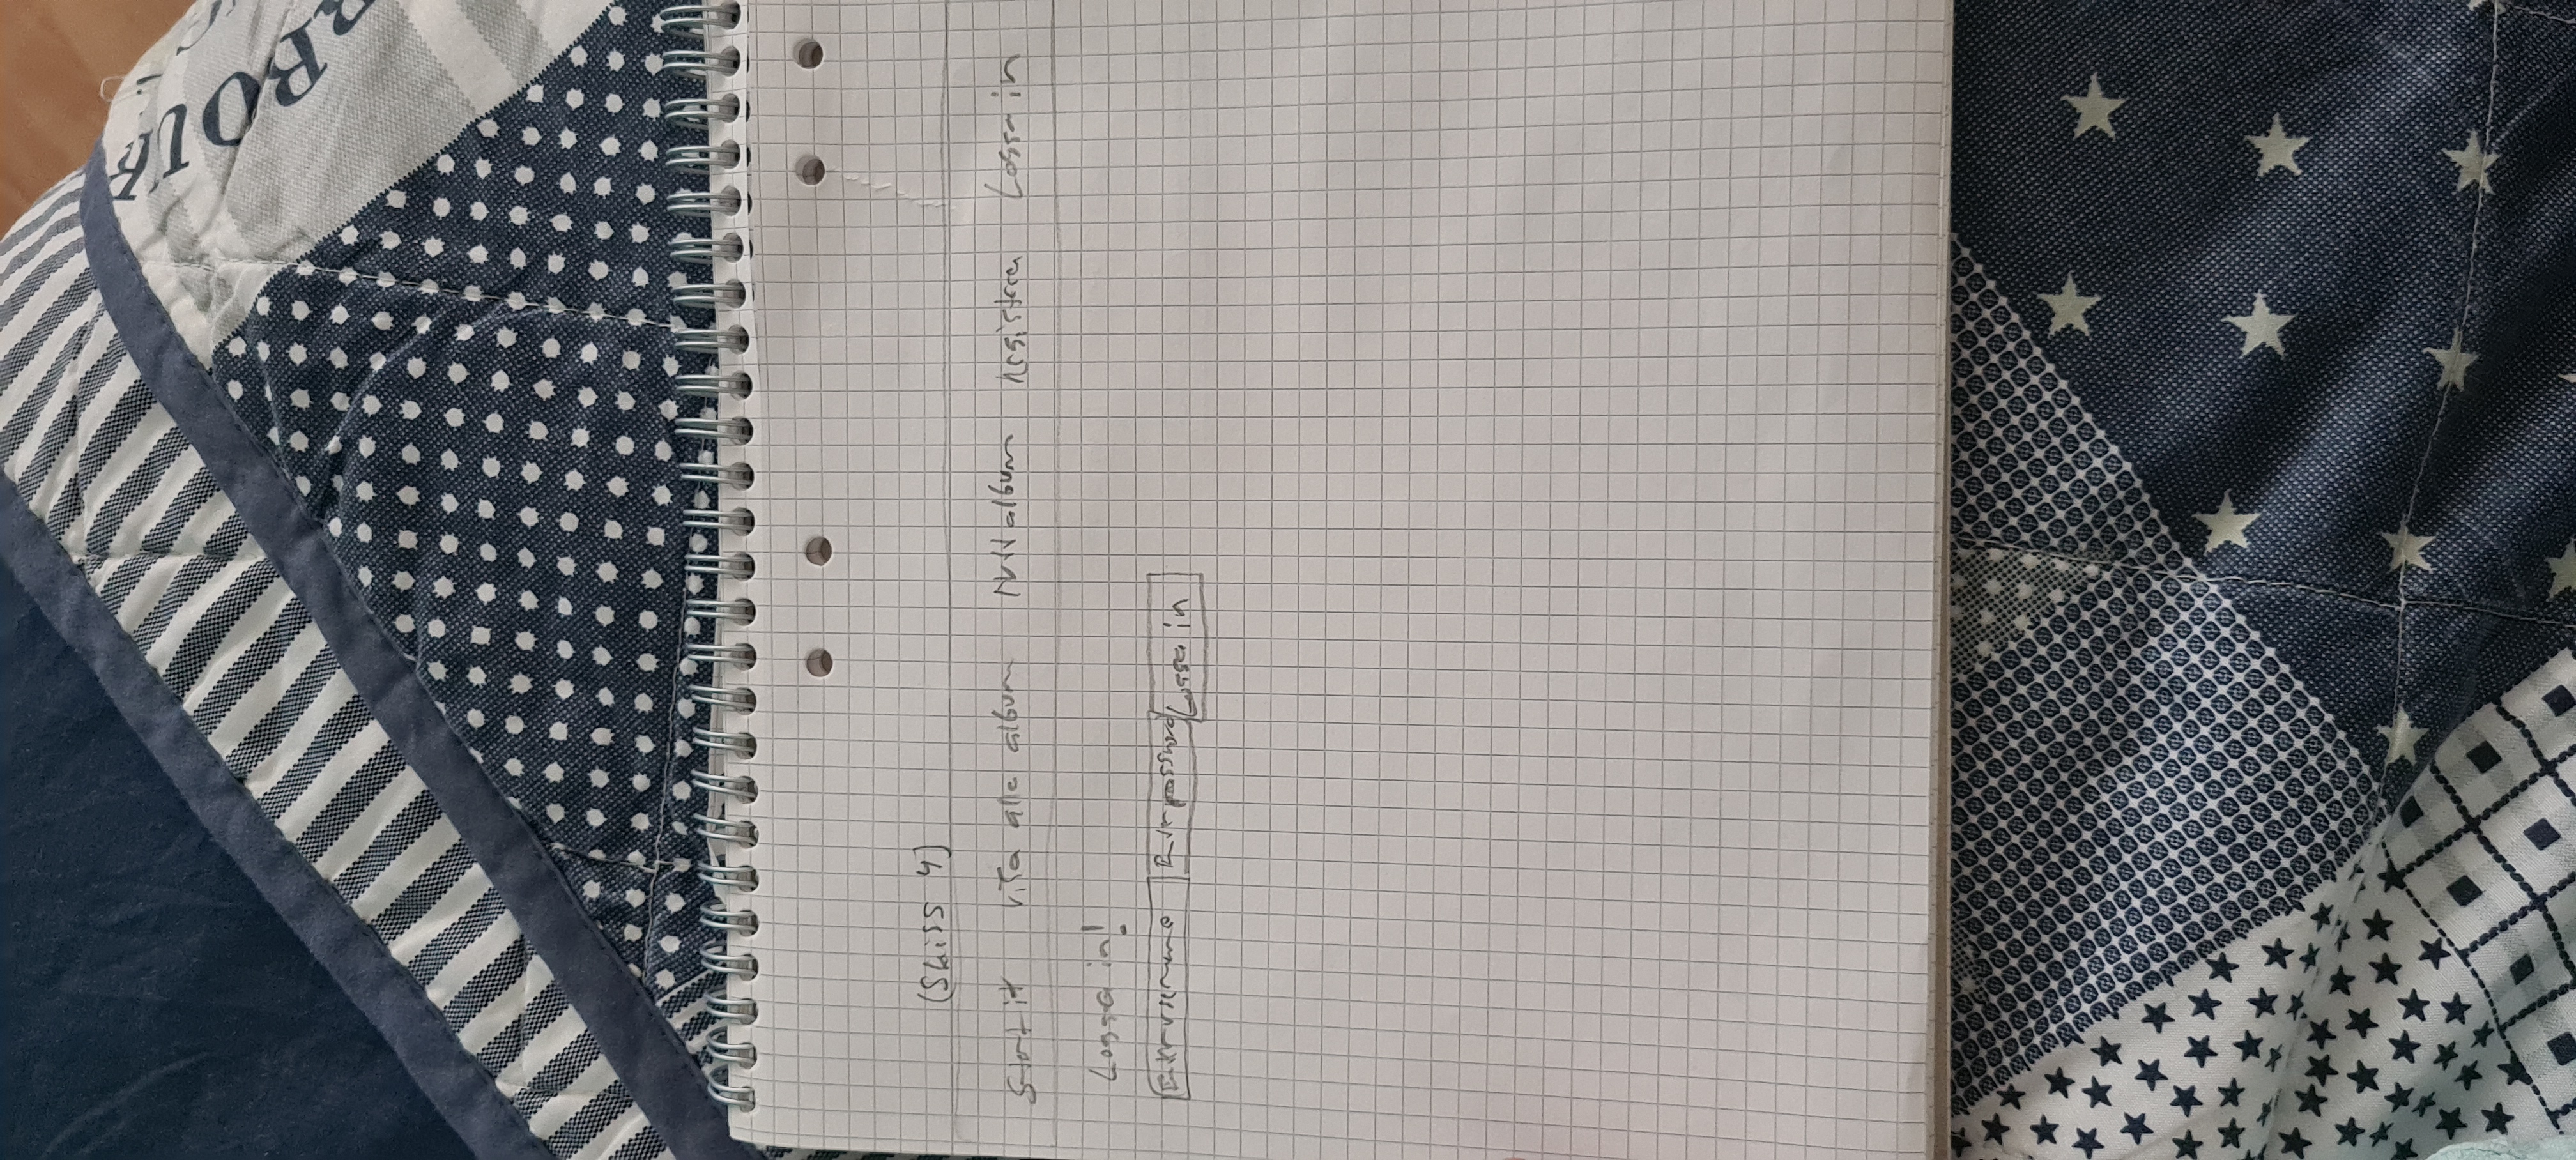 BOUR
(Skiss 4)
Visa alla album Nytt album registrera Logga in
Logga in!
Enter username Enter password Logga in